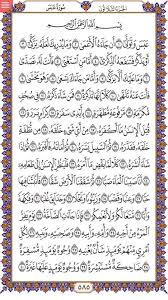 الجزء الثلاثون سورة عبس
بِسْمِ اللَّهِ الرَّحْمَٰنِ الرَّحِيمِ
عَبَسَ وَتَوَلَّىٰ ١ أَن جَاءَهُ الْأَعْمَىٰ ٢ وَمَا يُدْرِيكَ لَعَلَّهُ يَزَّكَّىٰ ٣
أَوْ يَذَّكَّرُ فَتَنفَعَهُ الذِّكْرَىٰ ٤ أَمَّا مَنِ اسْتَغْنَىٰ ٥ فَأَنتَ لَهُ تَصَدَّىٰ ٦
وَمَا عَلَيْكَ أَلَّا يَزَّكَّىٰ ٧ وَأَمَّا مَن جَاءَكَ يَسْعَىٰ ٨ وَهُوَ يَخْشَىٰ ٩
فَأَنتَ عَنْهُ تَلَهَّىٰ ١٠ كَلَّا إِنَّهَا تَذْكِرَةٌ ١١ فَمَن شَاءَ ذَكَرَهُ ١٢ فِي صُحُفٍ
مُّكَرَّمَةٍ ١٣ مَّرْفُوعَةٍ مُّطَهَّرَةٍ ١٤ بِأَيْدِي سَفَرَةٍ ١٥ كِرَامٍ بَرَرَةٍ ١٦
قُتِلَ الْإِنسَانُ مَا أَكْفَرَهُ ١٧ مِنْ أَيِّ شَيْءٍ خَلَقَهُ ١٨ مِن نُّطْفَةٍ خَلَقَهُ فَقَدَّرَهُ ١٩
ثُمَّ السَّبِيلَ يَسَّرَهُ ٢٠ ثُمَّ أَمَاتَهُ فَأَقْبَرَهُ ٢١ ثُمَّ إِذَا شَاءَ أَنشَرَهُ ٢٢ كَلَّا لَمَّا
يَقْضِ مَا أَمَرَهُ ٢٣ فَلْيَنظُرِ الْإِنسَانُ إِلَىٰ طَعَامِهِ ٢٤ أَنَّا صَبَبْنَا الْمَاءَ صَبًّا ٢٥
ثُمَّ شَقَقْنَا الْأَرْضَ شَقًّا ٢٦ فَأَنبَتْنَا فِيهَا حَبًّا ٢٧ وَعِنَبًا وَقَضْبًا ٢٨
وَزَيْتُونًا وَنَخْلًا ٢٩ وَحَدَائِقَ غُلْبًا ٣٠ وَفَاكِهَةً وَأَبًّا ٣١ مَّتَاعًا لَّكُمْ
وَلِأَنْعَامِكُمْ ٣٢ فَإِذَا جَاءَتِ الصَّاخَّةُ ٣٣ يَوْمَ يَفِرُّ الْمَرْءُ مِنْ أَخِيهِ ٣٤
وَأُمِّهِ وَأَبِيهِ ٣٥ وَصَاحِبَتِهِ وَبَنِيهِ ٣٦ لِكُلِّ امْرِئٍ
مِّنْهُمْ يَوْمَئِذٍ شَأْنٌ يُغْنِيهِ ٣٧ وُجُوهٌ يَوْمَئِذٍ مُّسْفِرَةٌ ٣٨
ضَاحِكَةٌ مُّسْتَبْشِرَةٌ ٣٩ وَوُجُوهٌ يَوْمَئِذٍ عَلَيْهَا غَبَرَةٌ ٤٠
٥٨٥